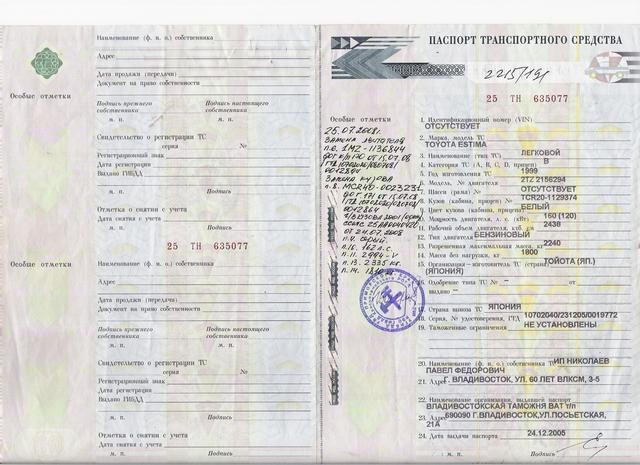 Наименование (ф. и. о.) собственника
Адрес
Дата продажи (передачи)
Документ на право собственности
Особые отметки
Подпись прежнего собственника
Подпись настоящего собственника
М. п.
М. п.
Свидетельство о регистрации ТС
серия №
Регистрационный знак
Дата регистрации
Выдано ГИБДД
М. п.
Подпись
Отметка о снятии с учета
Дата снятия с учета
М. п.
Подпись
25 ТН 635077
Особые отметки
Наименование (ф. и. о.) собственника
Адрес
Дата продажи (передачи)
Документ на право собственности
Подпись прежнего собственника
Подпись настоящего собственника
М. п.
М. п.
Свидетельство о регистрации ТС
серия №
Регистрационный знак
Дата регистрации
Выдано ГИБДД
М. п.
Подпись
Отметка о снятии с учета
Дата снятия с учета
М. п.
Подпись
ПАСПОРТ ТРАНСПОРТНОГО СРЕДСТВА
25 ТН 635077
Особые отметки
25.07.2008г.
ЗАМЕНА ДВИГАТЕЛЯ
п.6. 1MZ-1136844
ЗАМЕНА КУЗОВА
п.8. MCR40-0023231
от 24.07.2008
п.9. СЕРЫЙ.
п.11. 2994-V
п.13. 2335 кг.
1. Идентификационный номер (VIN)
ОТСУТСТВУЕТ
2. Марка, модель ТС
TOYOTA ESTIMA
3. Наименование (тип ТС) ЛЕГКОВОЙ
4. Категория ТС (А, В, С, D, прицеп) B
5. Год изготовления ТС 1999
6. Модель, № двигателя 2TZ 2156294
7. Шасси (рама) № ОТСУТСТВУЕТ
8. Кузов (кабина, прицеп) № TCR20-1129374
9. Цвет кузова (кабины, прицепа) БЕЛЫЙ
10. Мощность двигателя, л. с. (кВт) 160 (120)
11. Рабочий объем двигателя, куб. см 2438
12. Тип двигателя БЕНЗИНОВЫЙ
13. Разрешенная максимальная масса, кг 2240
14. Масса без нагрузки, кг 1800
15. Организация - изготовитель ТС (страна) ТОЙОТА (ЯП.)
(ЯПОНИЯ)
16. Одобрение типа ТС № — от
выдано —
17. Страна вывоза ТС ЯПОНИЯ
18. Серия, № удостоверения, ГТД 10702040/231205/0019772
19. Таможенные ограничения НЕ УСТАНОВЛЕНЫ
20. Наименование (ф. и. о.) собственника ТС ИП НИКОЛАЕВ
ПАВЕЛ ФЕДОРОВИЧ
21. Адрес Г. ВЛАДИВОСТОК, УЛ. 60 ЛЕТ ВЛКСМ, 3-5
22. Наименование организации, выдавшей паспорт
ВЛАДИВОСТОКСКАЯ ТАМОЖНЯ ВАТ т/п
23. Адрес 690090 Г.ВЛАДИВОСТОК,УЛ.ПОСЬЕТСКАЯ,
21А
24. Дата выдачи паспорта 24.12.2005
М. п. Подпись